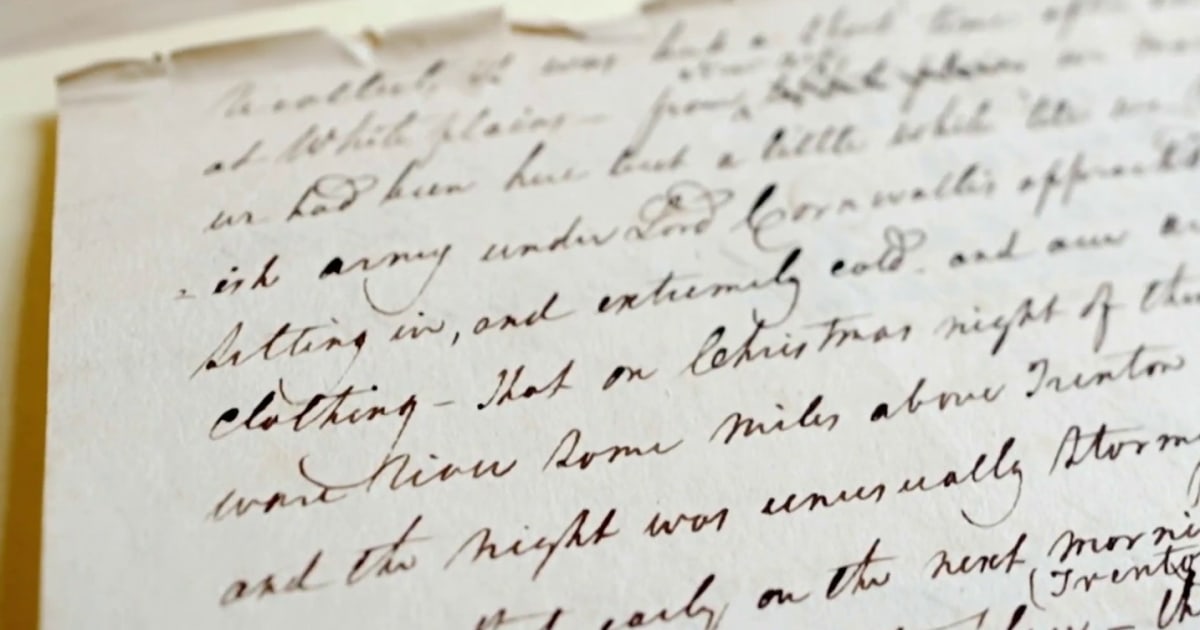 recollect, it was but a short time after
at White plains – from
we had been here but a little while til we
-ish army under Lord Cornwallis approach
setting in, and extremely cold. and our
clothing – That on Christmas night of
ware River some miles above Trenton
and the night was unusually storm
early on the next morni
(Trento